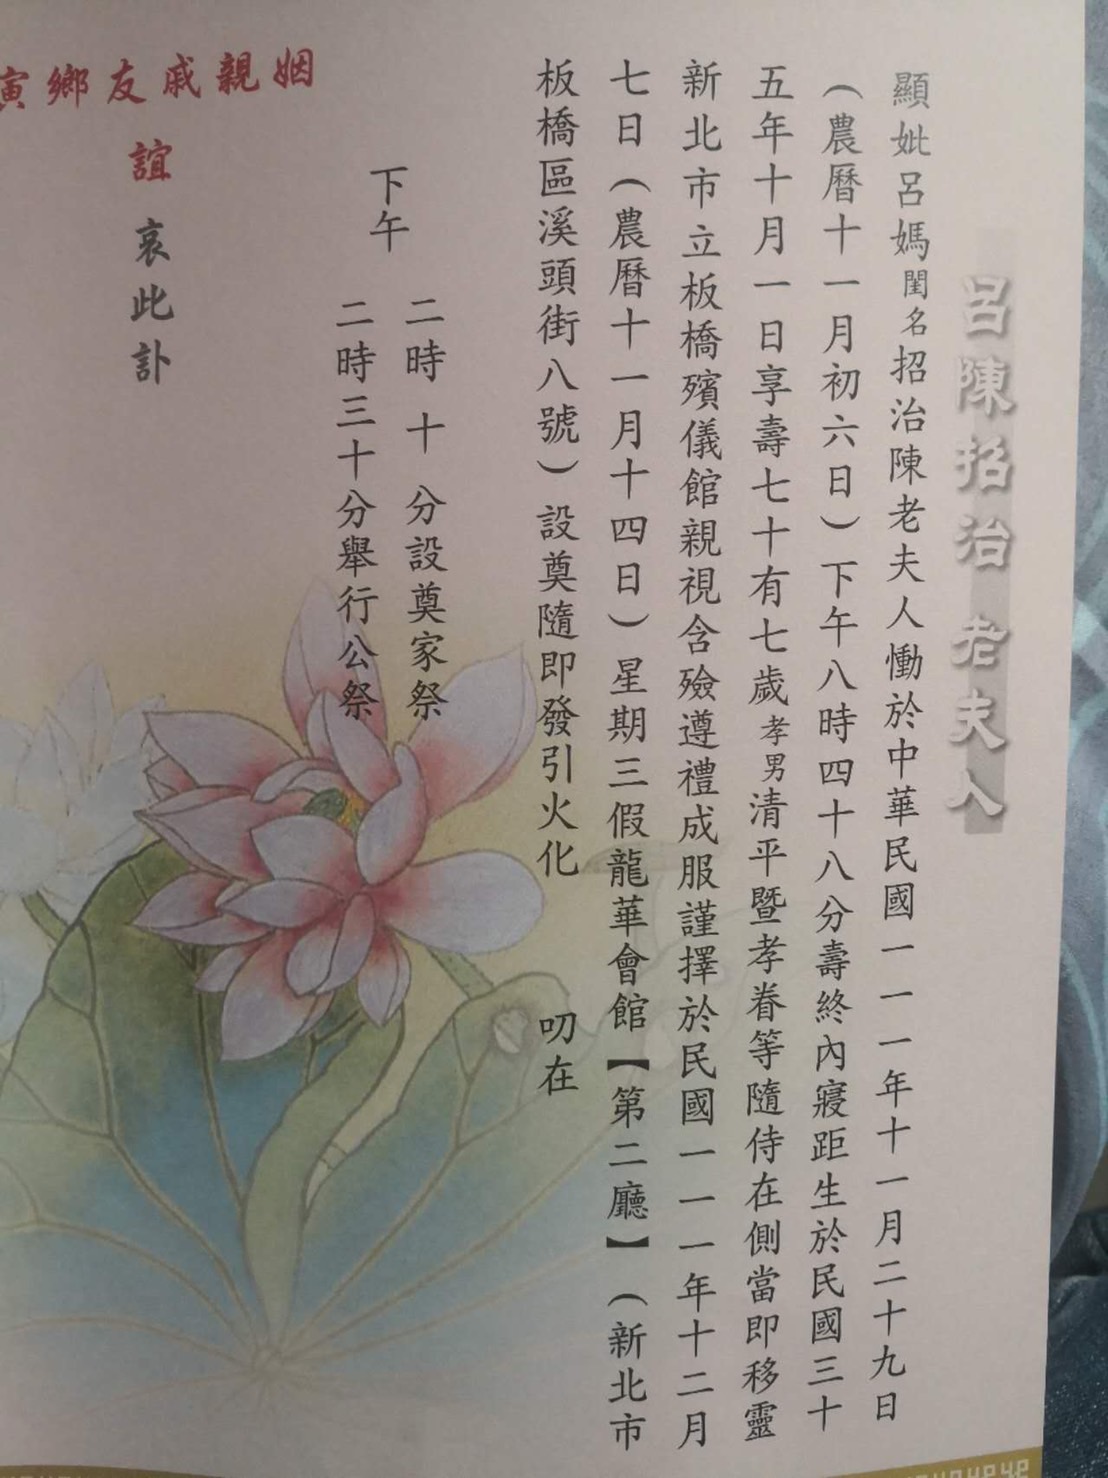 呂陳招治 老夫人
顯妣呂媽閨名招治陳老夫人慟於中華民國一一一年十一月二十九日
（農曆十一月初六日）下午八時四十八分壽終內寢距生於民國三十
五年十月一日享壽七十有七歲孝男清平暨孝眷等隨侍在側當即移靈
新北市立板橋殯儀館親視含殮遵禮成服謹擇於民國一一一年十二月
七日（農曆十一月十四日）星期三假龍華會館【第二廳】（新北市
板橋區溪頭街八號）設奠隨即發引火化 叨在
下午
二時 十 分設奠家祭
二時三十分舉行公祭
姻親戚友鄉寅
誼 哀此訃